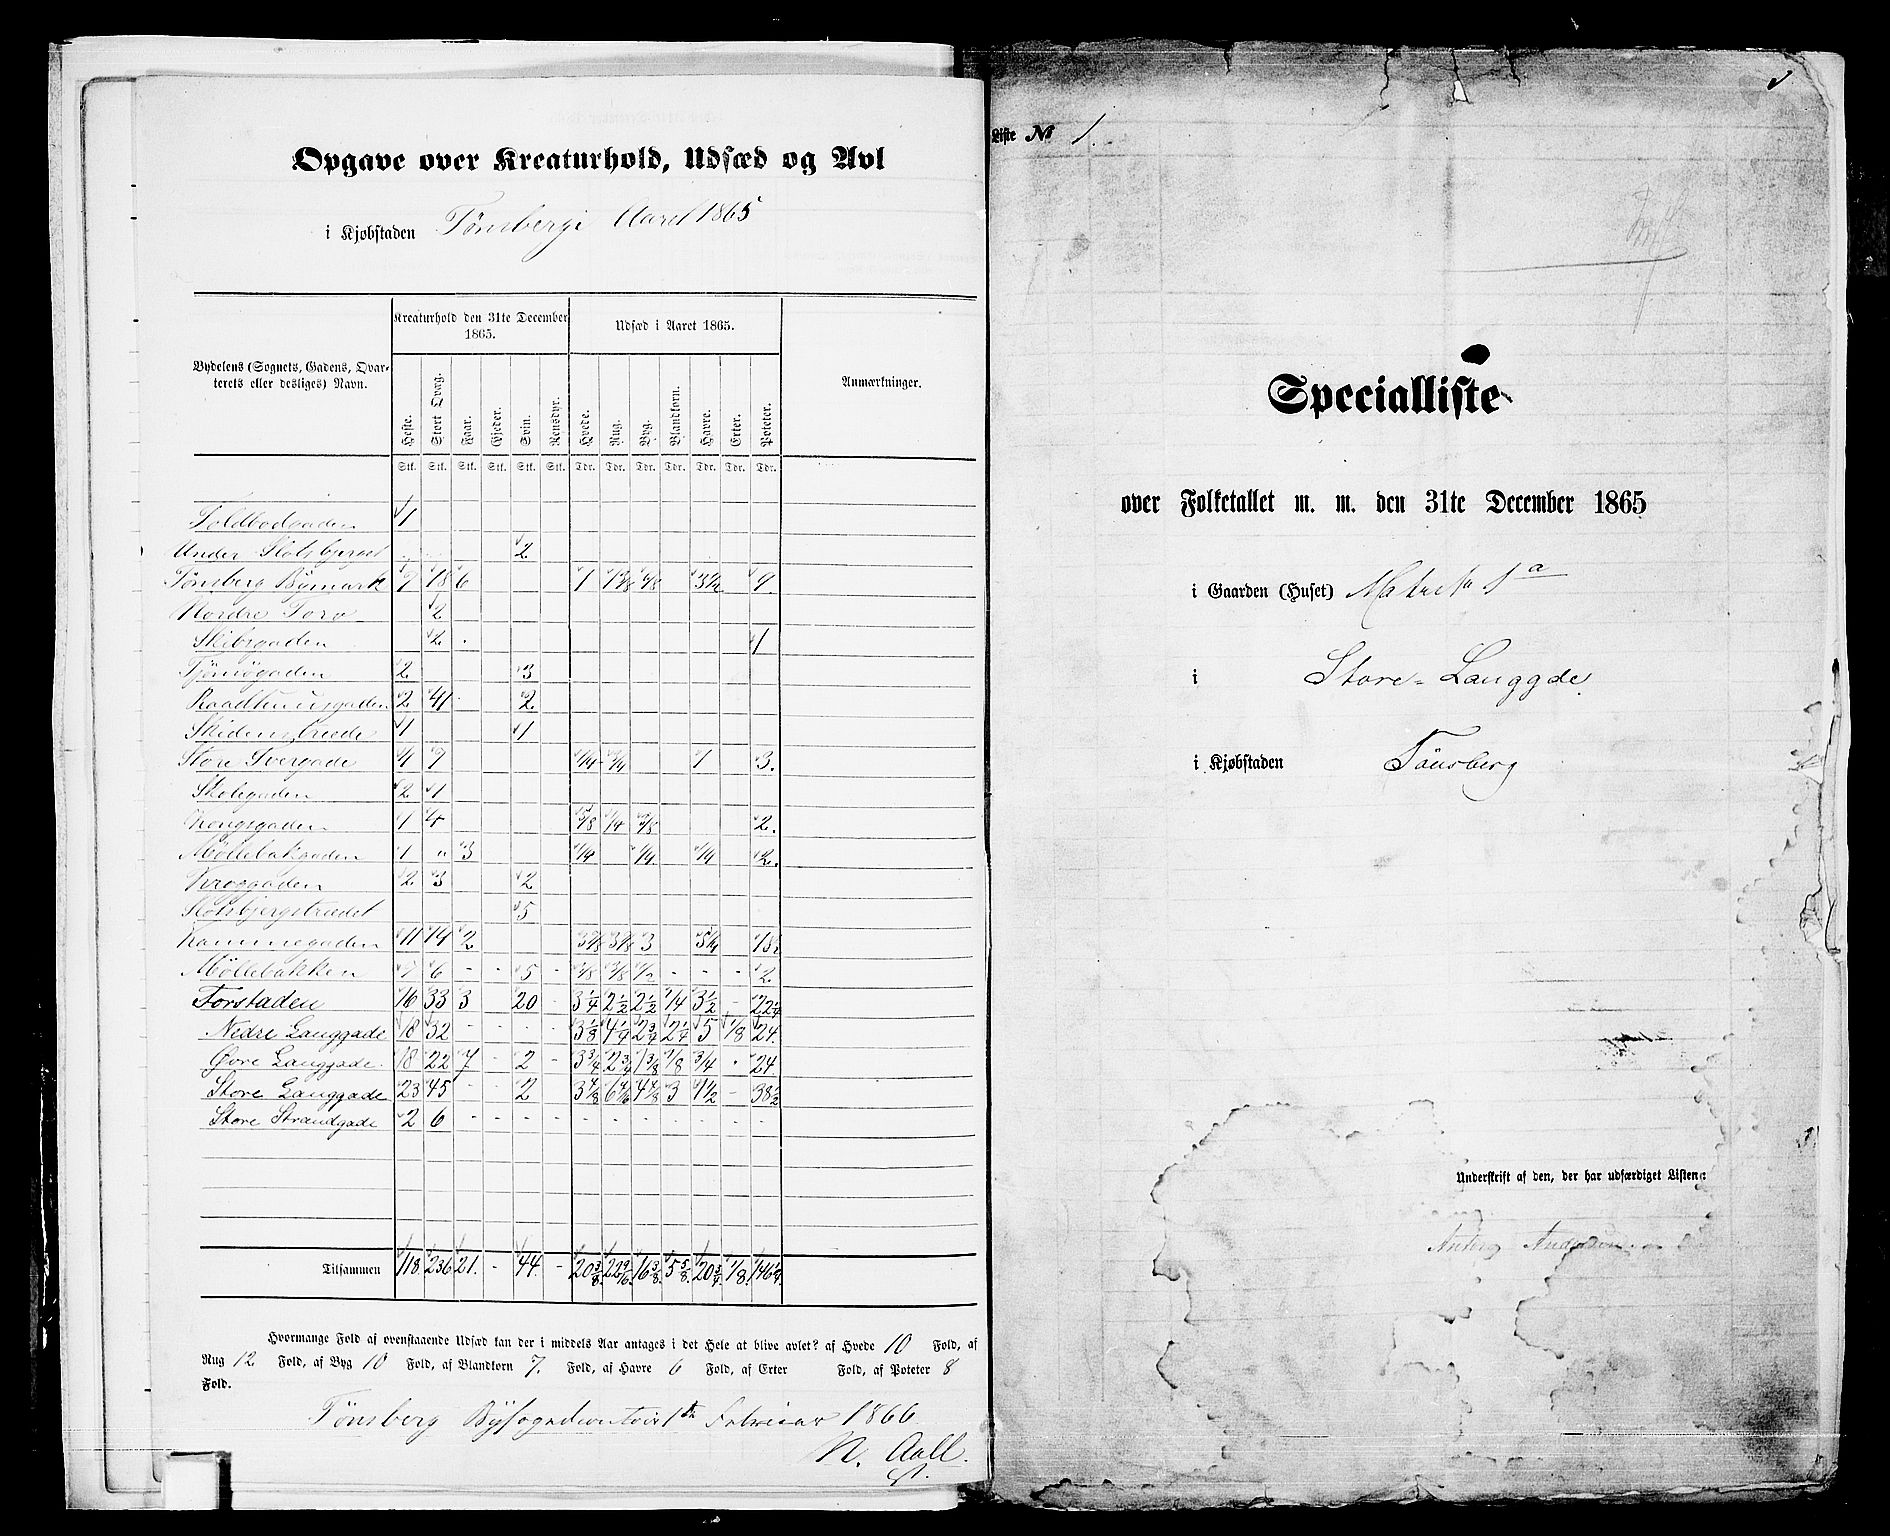 Opgave over Kreaturhold, Udsæd og Avl
i Kjøbstaden Tönsberg i Aaret 1865
Kreaturhold den 31te December 1865.
Udsæd i Aaret 1865.
Bydelens (Sognets, Gadens, Qvarterets eller desliges) Navn.
Anmærkninger.
Heste. Stort Qvæg. Faar. Gjeder. Svin. Rensdyr. Hvede. Rug. Byg. Blandkorn. Havre. Erter. Poteter.
Stk. Stk. Stk. Stk. Stk. Stk. Tdr. Tdr. Tdr. Tdr. Tdr. Tdr. Tdr.
Toldbodgaden 1
Under Slotsbjerget 2
Tønsberg Bymark 7 18 6 1 9
Nordre Torv 2
Skibsgaden 2 1
Tjömögaden 2 3
Raadhuusgaden 2 41 2
Skidenstræde 1 1
Store Tvergade 4 7 1/4 1 3.
Skolegaden 2 1
Kongsgaden 1 4 2.
Möllebakgaden 1 " 3 1/4 1/4 1/4 2.
2 3 2
Slotsbjergstrædet 5
11 14 2 3
Möllebakken 7 6 - - 5 - 1/2 - - - 2
Forstaden 16 33 3 20 - 3 1/4 2 1/2 2 1/2 14 3 1/2 - 22 1/4
Nedre Langgade 18 32 - - - - 3 1/8 4 1/4 2 3/4 2 1/4 5 1/8 24.
Övre Langgade. 18 22 7 - 2 - 3 3/4 2 3/4 1 3/8 1/8 3/4 . 24.
Store Langgade 23 45 - - 2 3 3 - 38 1/2
Store Strandgade 2 6 - - - - - - - - - - -
Tilsammen 118. 236 21. - 44. - 20 3/8 22 16 3/8 5 5/8 20 3/4 1/8. 146 1/4.
Hvormange Fold af ovenstaaende Udsæd kan der i middels Aar antages i det Hele at blive avlet? af Hvede 10 Fold, af
Rug 12 Fold, af Byg 10 Fold, af Blandkorn 7. Fold, af Havre 6 Fold, af Erter Fold, af Poteter 8
Fold.
Tönsberg Byfogedcontoir 1ste Februar 1866
N. Aall.
Liste № 1.
Specialliste
over Folketallet m. m. den 31te December 1865
i Gaarden (Huset) Matr No 1 a
i Store-Langgde.
i Kjøbstaden Tönsberg
Underskrift af den, der har udfærdiget Listen: